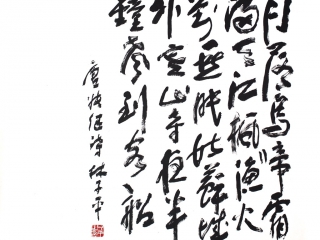 月落烏啼霜
滿天江楓漁火
對愁眠姑蘇城
外寒山寺夜半
鐘聲到客船
唐張繼詩林子平